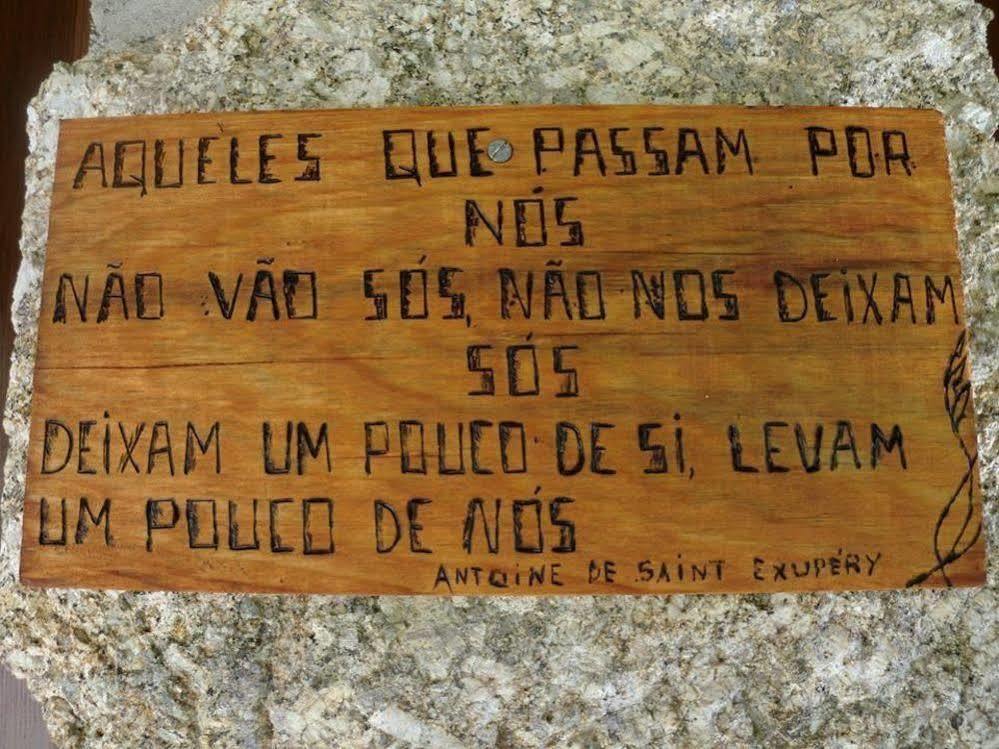 AQUELES QUE PASSAM POR
NÓS
NÃO VÃO SÓS, NÃO NOS DEIXAM
SÓS
DEIXAM UM POUCO DE SI, LEVAM
UM POUCO DE NÓS
ANTOINE DE SAINT EXUPÉRY